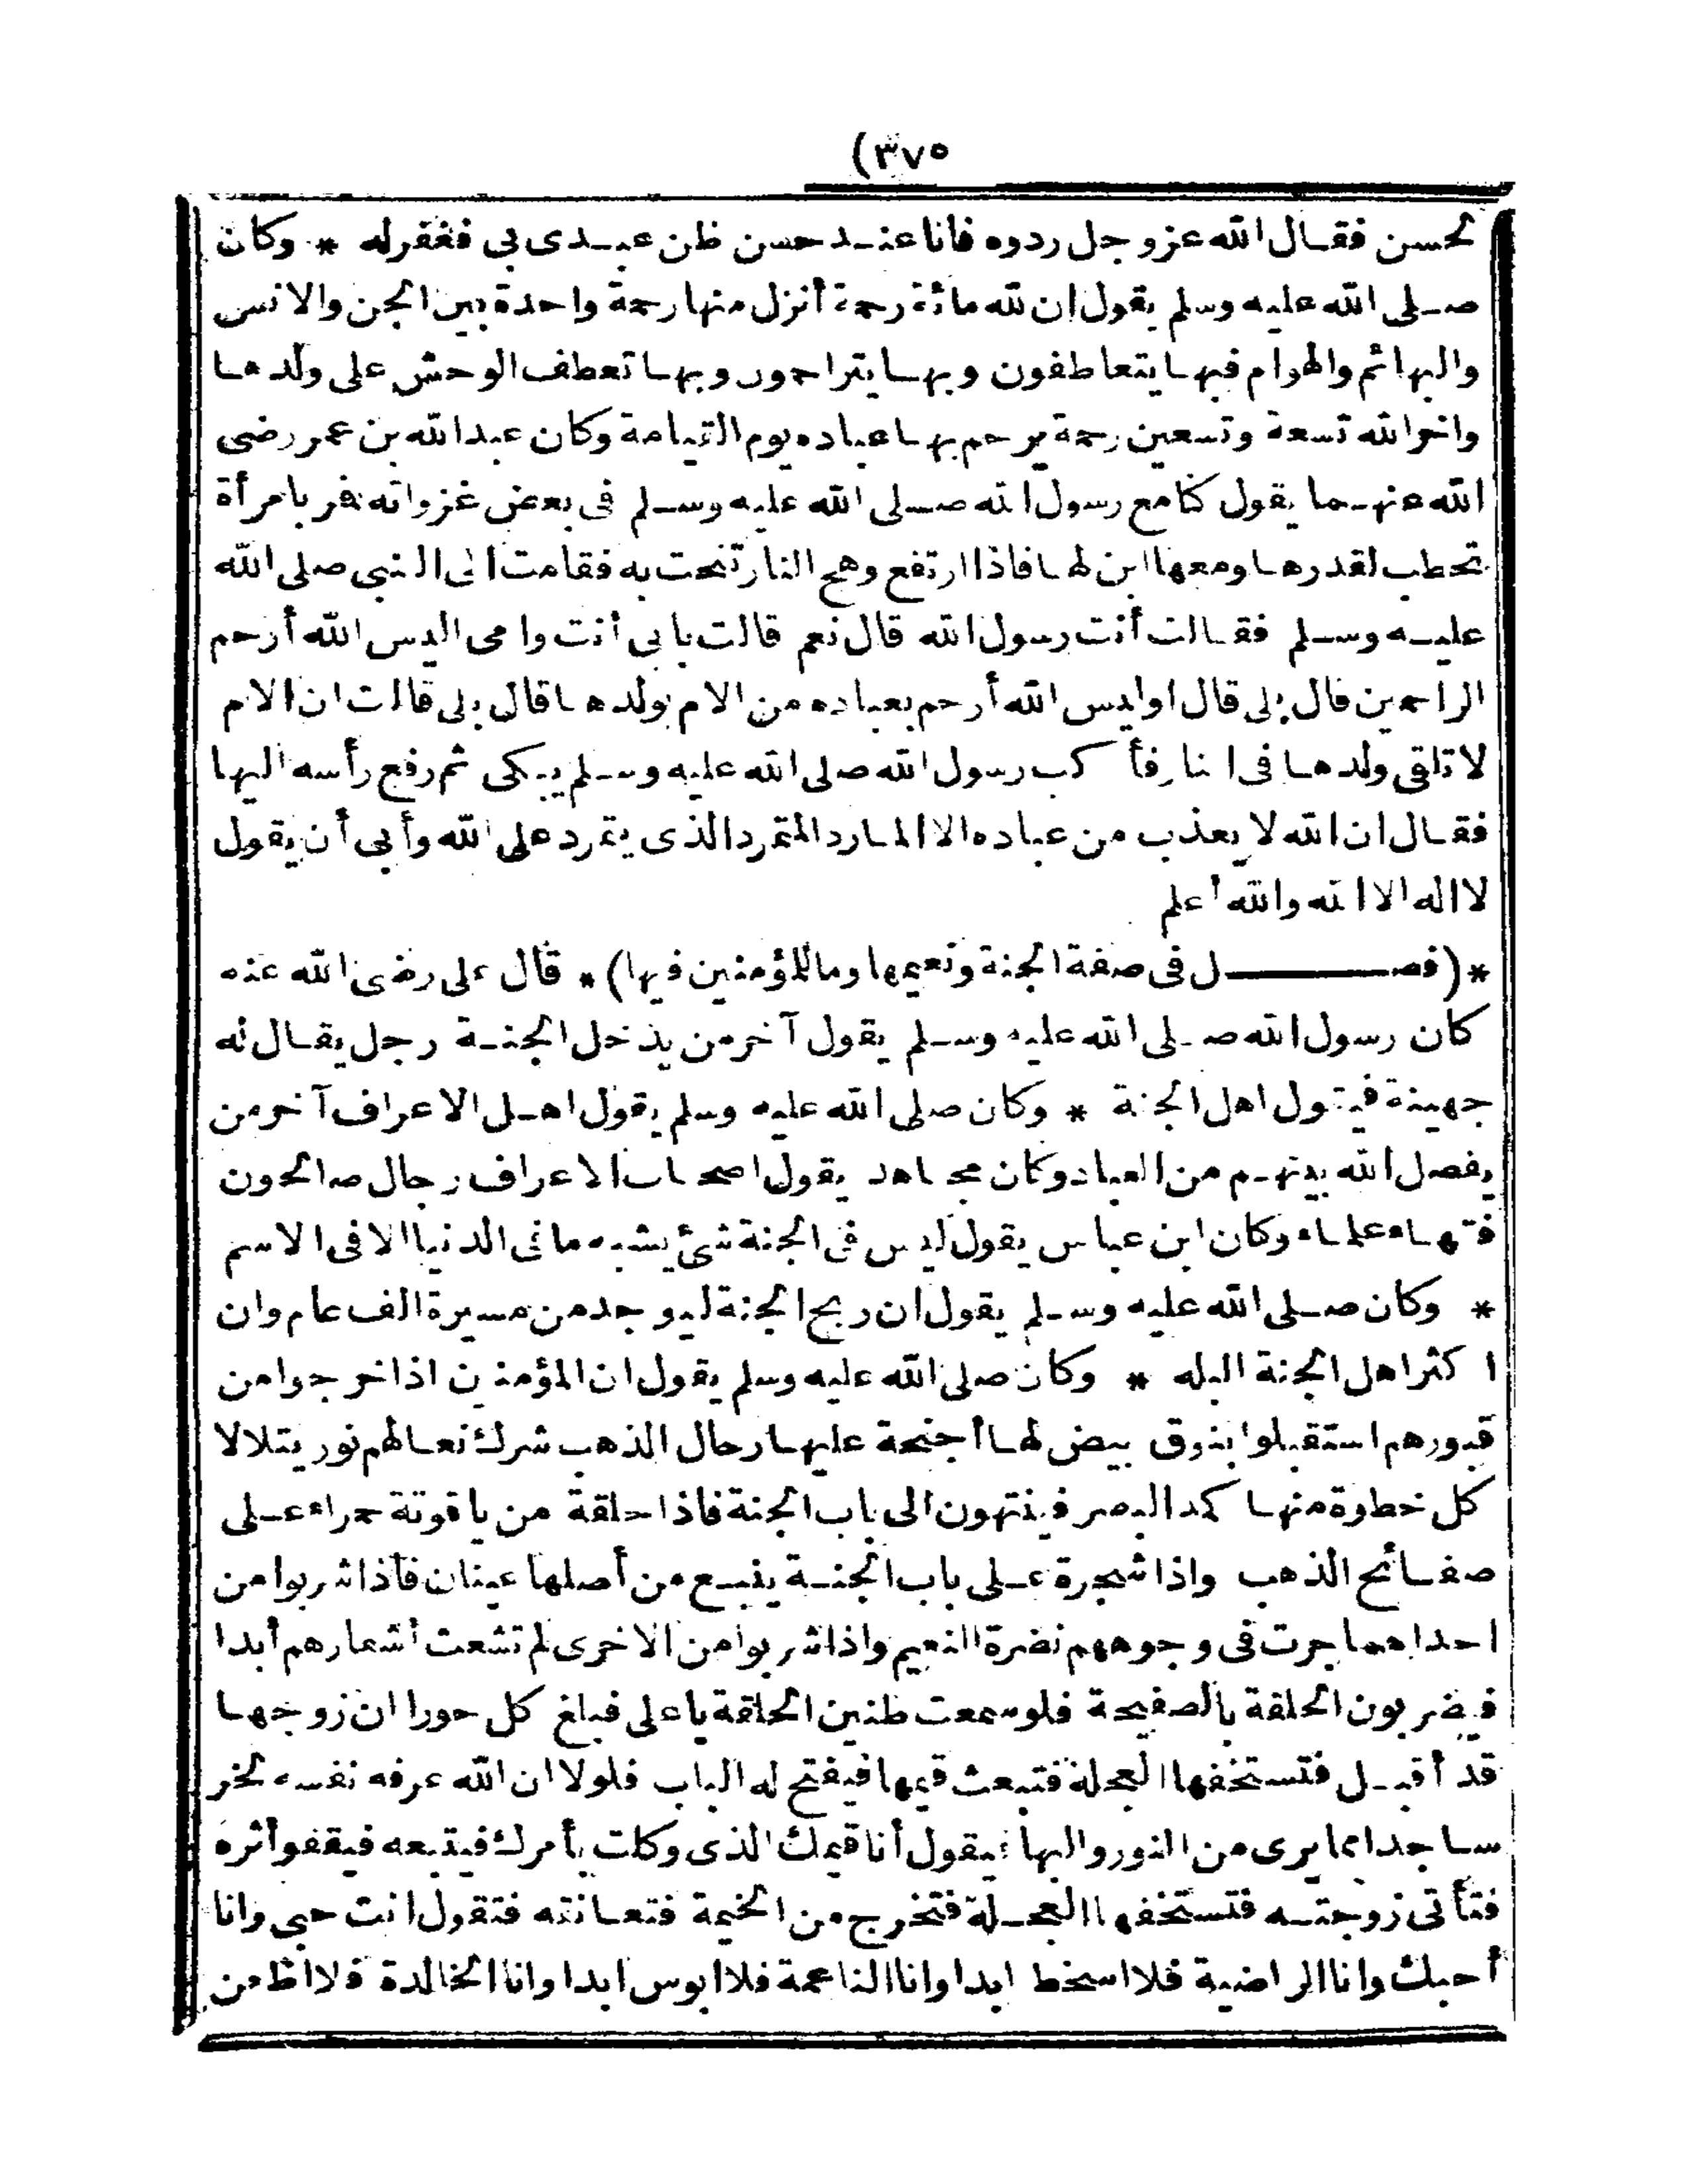 (٣٧٥
لحسن فقال الله عز وجل ردوه فانا عند حسن ظن عبدى بى فغفر له * وكان
صلى الله عليه وسلم يقول ان لله مائة رحمة أنزل منها رحمة واحدة بين الجن والانس
والبهائم والهوام فبها يتعاطفون وبها يتراحمون وبها تعطف الوحش على ولدها
واخر الله تسعة وتسعين رحمة يرحم بها عباده يوم القيامة وكان عبد الله بن عمر رضى
الله عنهما يقول كنا مع رسول الله صلى الله عليه وسلم فى بعض غزواته فمر بامرأة
تحطب لقدرها ومعها ابن لها فاذا ارتفع وهج النار تنحت به فقامت الى النبى صلى الله
عليه وسلم فقالت أنت رسول الله قال نعم قالت بابى أنت وامى اليس الله أرحم
الراحمين قال بلى قال اوليس الله أرحم بعباده من الام بولدها قال بلى قالت ان الام
لا تلقى ولدها فى النار فأكب رسول الله صلى الله عليه وسلم يبكى ثم رفع رأسه اليها
فقال ان الله لا يعذب من عباده الا المارد المتمرد الذى يتمرد على الله وأبى أن يقول
لا اله الا الله والله أعلم
*(فصل فى صفة الجنة ونعيمها وما للمؤمنين فيها)* قال على رضى الله عنه
كان رسول الله صلى الله عليه وسلم يقول آخر من يدخل الجنة رجل يقال له
جهينة فيقول اهل الجنة * وكان صلى الله عليه وسلم يقول اهل الاعراف آخر من
يفصل الله بينهم من العباد وكان مجاهد يقول اصحاب الاعراف رجال صالحون
فقهاء علماء وكان ابن عباس يقول ليس فى الجنة شئ يشبه ما فى الدنيا الا فى الاسم
* وكان صلى الله عليه وسلم يقول ان ريح الجنة ليوجد من مسيرة الف عام وان
اكثر اهل الجنة البله * وكان صلى الله عليه وسلم يقول ان المؤمنين اذا خرجوا من
قبورهم استقبلوا بنوق بيض لها أجنحة عليها رحال الذهب شرك نعالهم نور يتلالا
كل خطوة منها كمد البصر فينتهون الى باب الجنة فاذا حلقة من ياقوتة حمراء على
صفائح الذهب واذا شجرة على باب الجنة ينبع من أصلها عينان فاذا شربوا من
احداهما جرت فى وجوههم نضرة النعيم واذا شربوا من الاخرى لم تشعث أشعارهم أبدا
فيضربون الحلقة بالصفيحة فلو سمعت طنين الحلقة ياعلى فيبلغ كل حورا ان زوجها
قد أقبل فتستخفها العجلة فتبعث قيمها فيفتح له الباب فلولا ان الله عرفه نفسه لخر
ساجدا مما يرى من النور والبها فيقول أنا قيمك الذى وكلت بأمرك فيتبعه فيقفو أثره
فتأتى زوجته فتستخفها العجلة فتخرج من الخيمة فتعانقه فتقول انت حبى وانا
أحبك وانا الراضية فلا اسخط ابدا وانا الناعمة فلا ابوس ابدا وانا الخالدة فلا اظعن